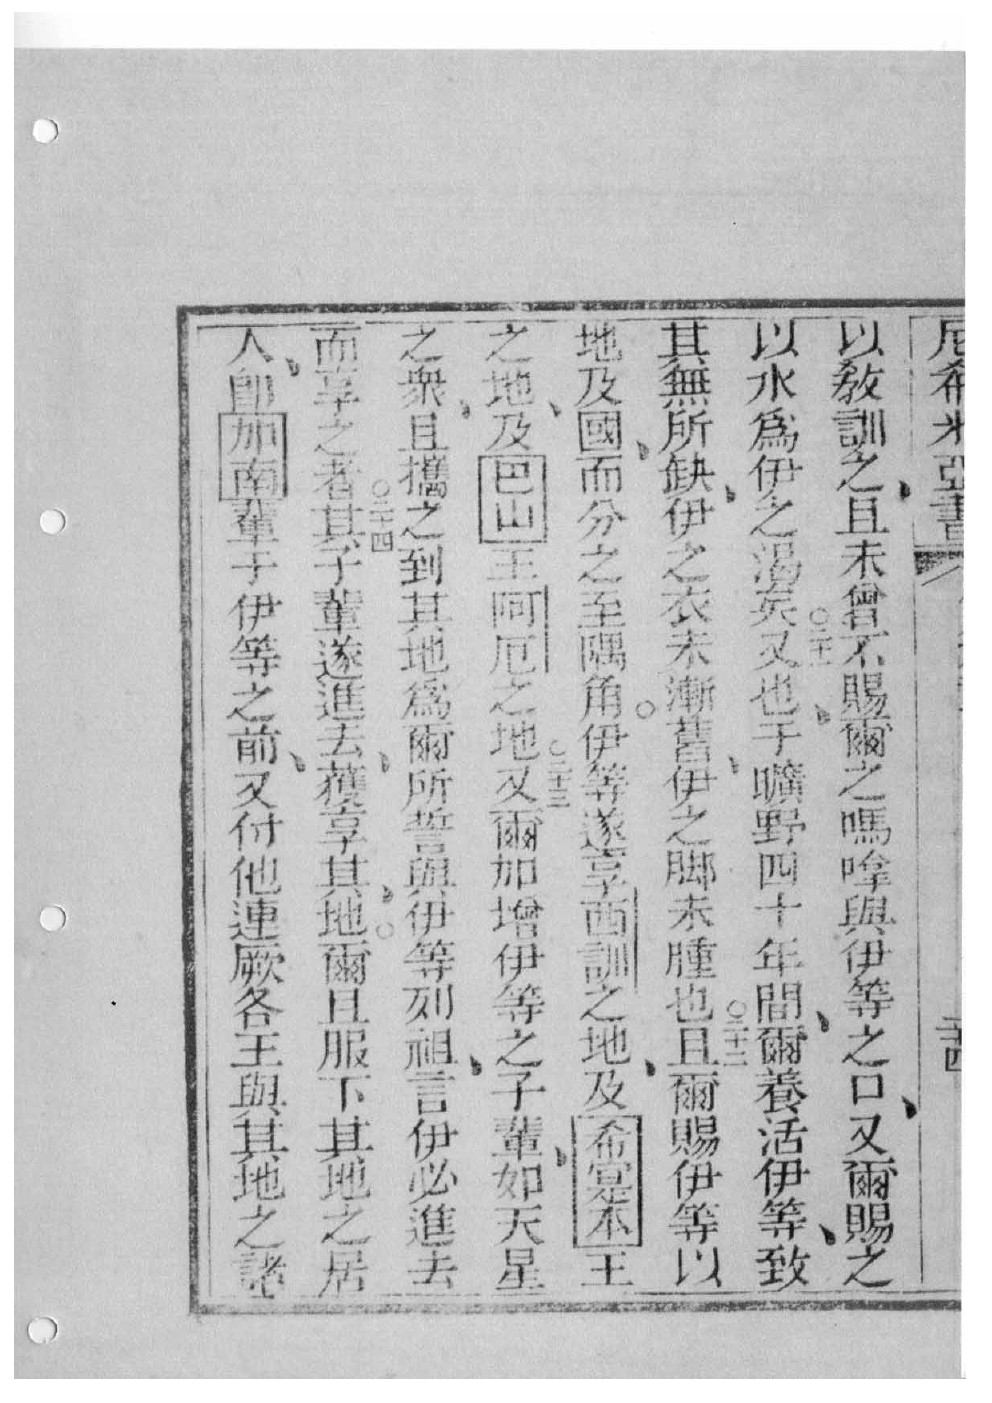 尼希米亞書 二十四
以教訓之、且未曾不賜爾之嗎㖮與伊等之口、又爾賜之
以水爲伊之渴矣○二十一又也、于曠野四十年間、爾養活伊等、致
其無所缺、伊之衣未漸舊、伊之脚未腫也○二十二且爾賜伊等以
地及國、而分之至隅角。伊等遂享西訓之地、及希寔本王
之地、及巴山王阿厄之地○二十三又爾加增伊等之子輩、如天星
之衆、且攜之到其地爲爾所誓與伊等列祖、言伊必進去
而享之者○二十四其子輩遂進去、獲享其地、爾且服下其地之居
人、卽加南輩于伊等之前、又付他連厥各王與其地之諸